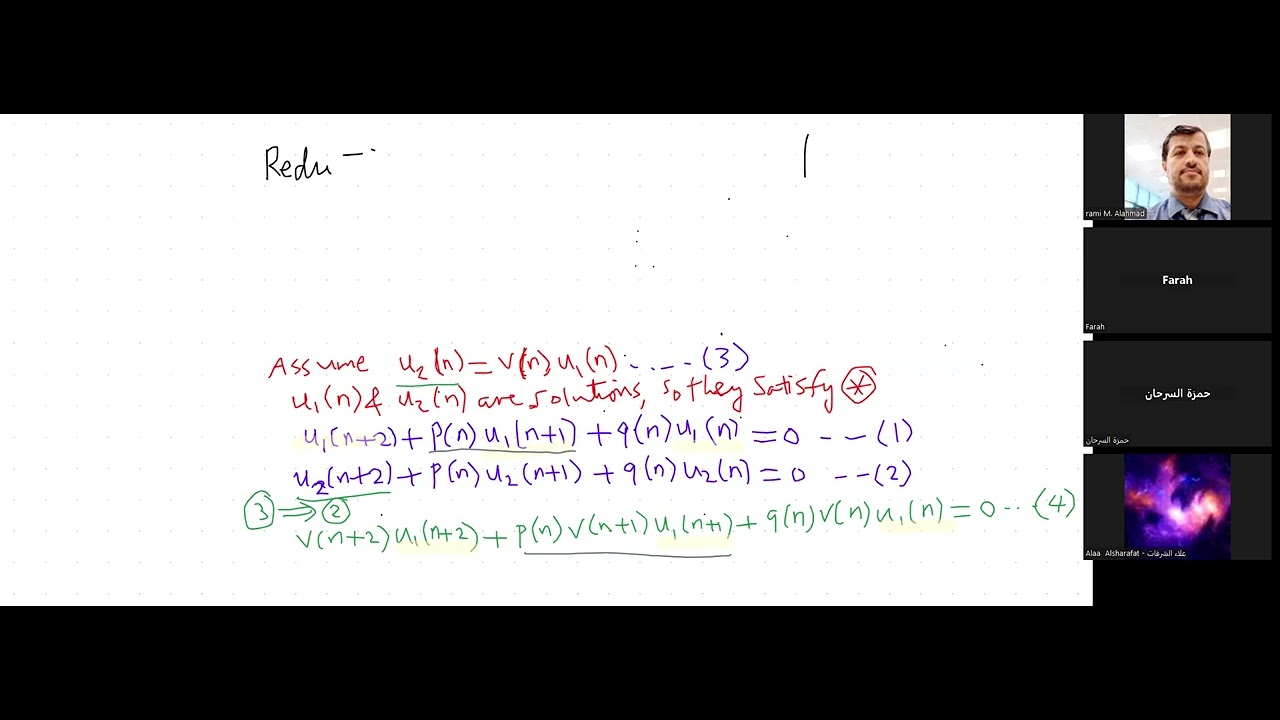 Redu -
Assume u₂(n) = v(n) u₁(n) ---- (3)
u₁(n) & u₂(n) are solutions, so they satisfy ⊛
u₁(n+2) + p(n) u₁(n+1) + q(n) u₁(n) = 0 --- (1)
u₂(n+2) + p(n) u₂(n+1) + q(n) u₂(n) = 0 --- (2)
③ ⇒ ②
v(n+2) u₁(n+2) + p(n) v(n+1) u₁(n+1) + q(n) v(n) u₁(n) = 0 -- (4)
rami M. Alahmad
Farah
Farah
حمزة السرحان
حمزة السرحان
Alaa Alsharafat - علاء الشرفات